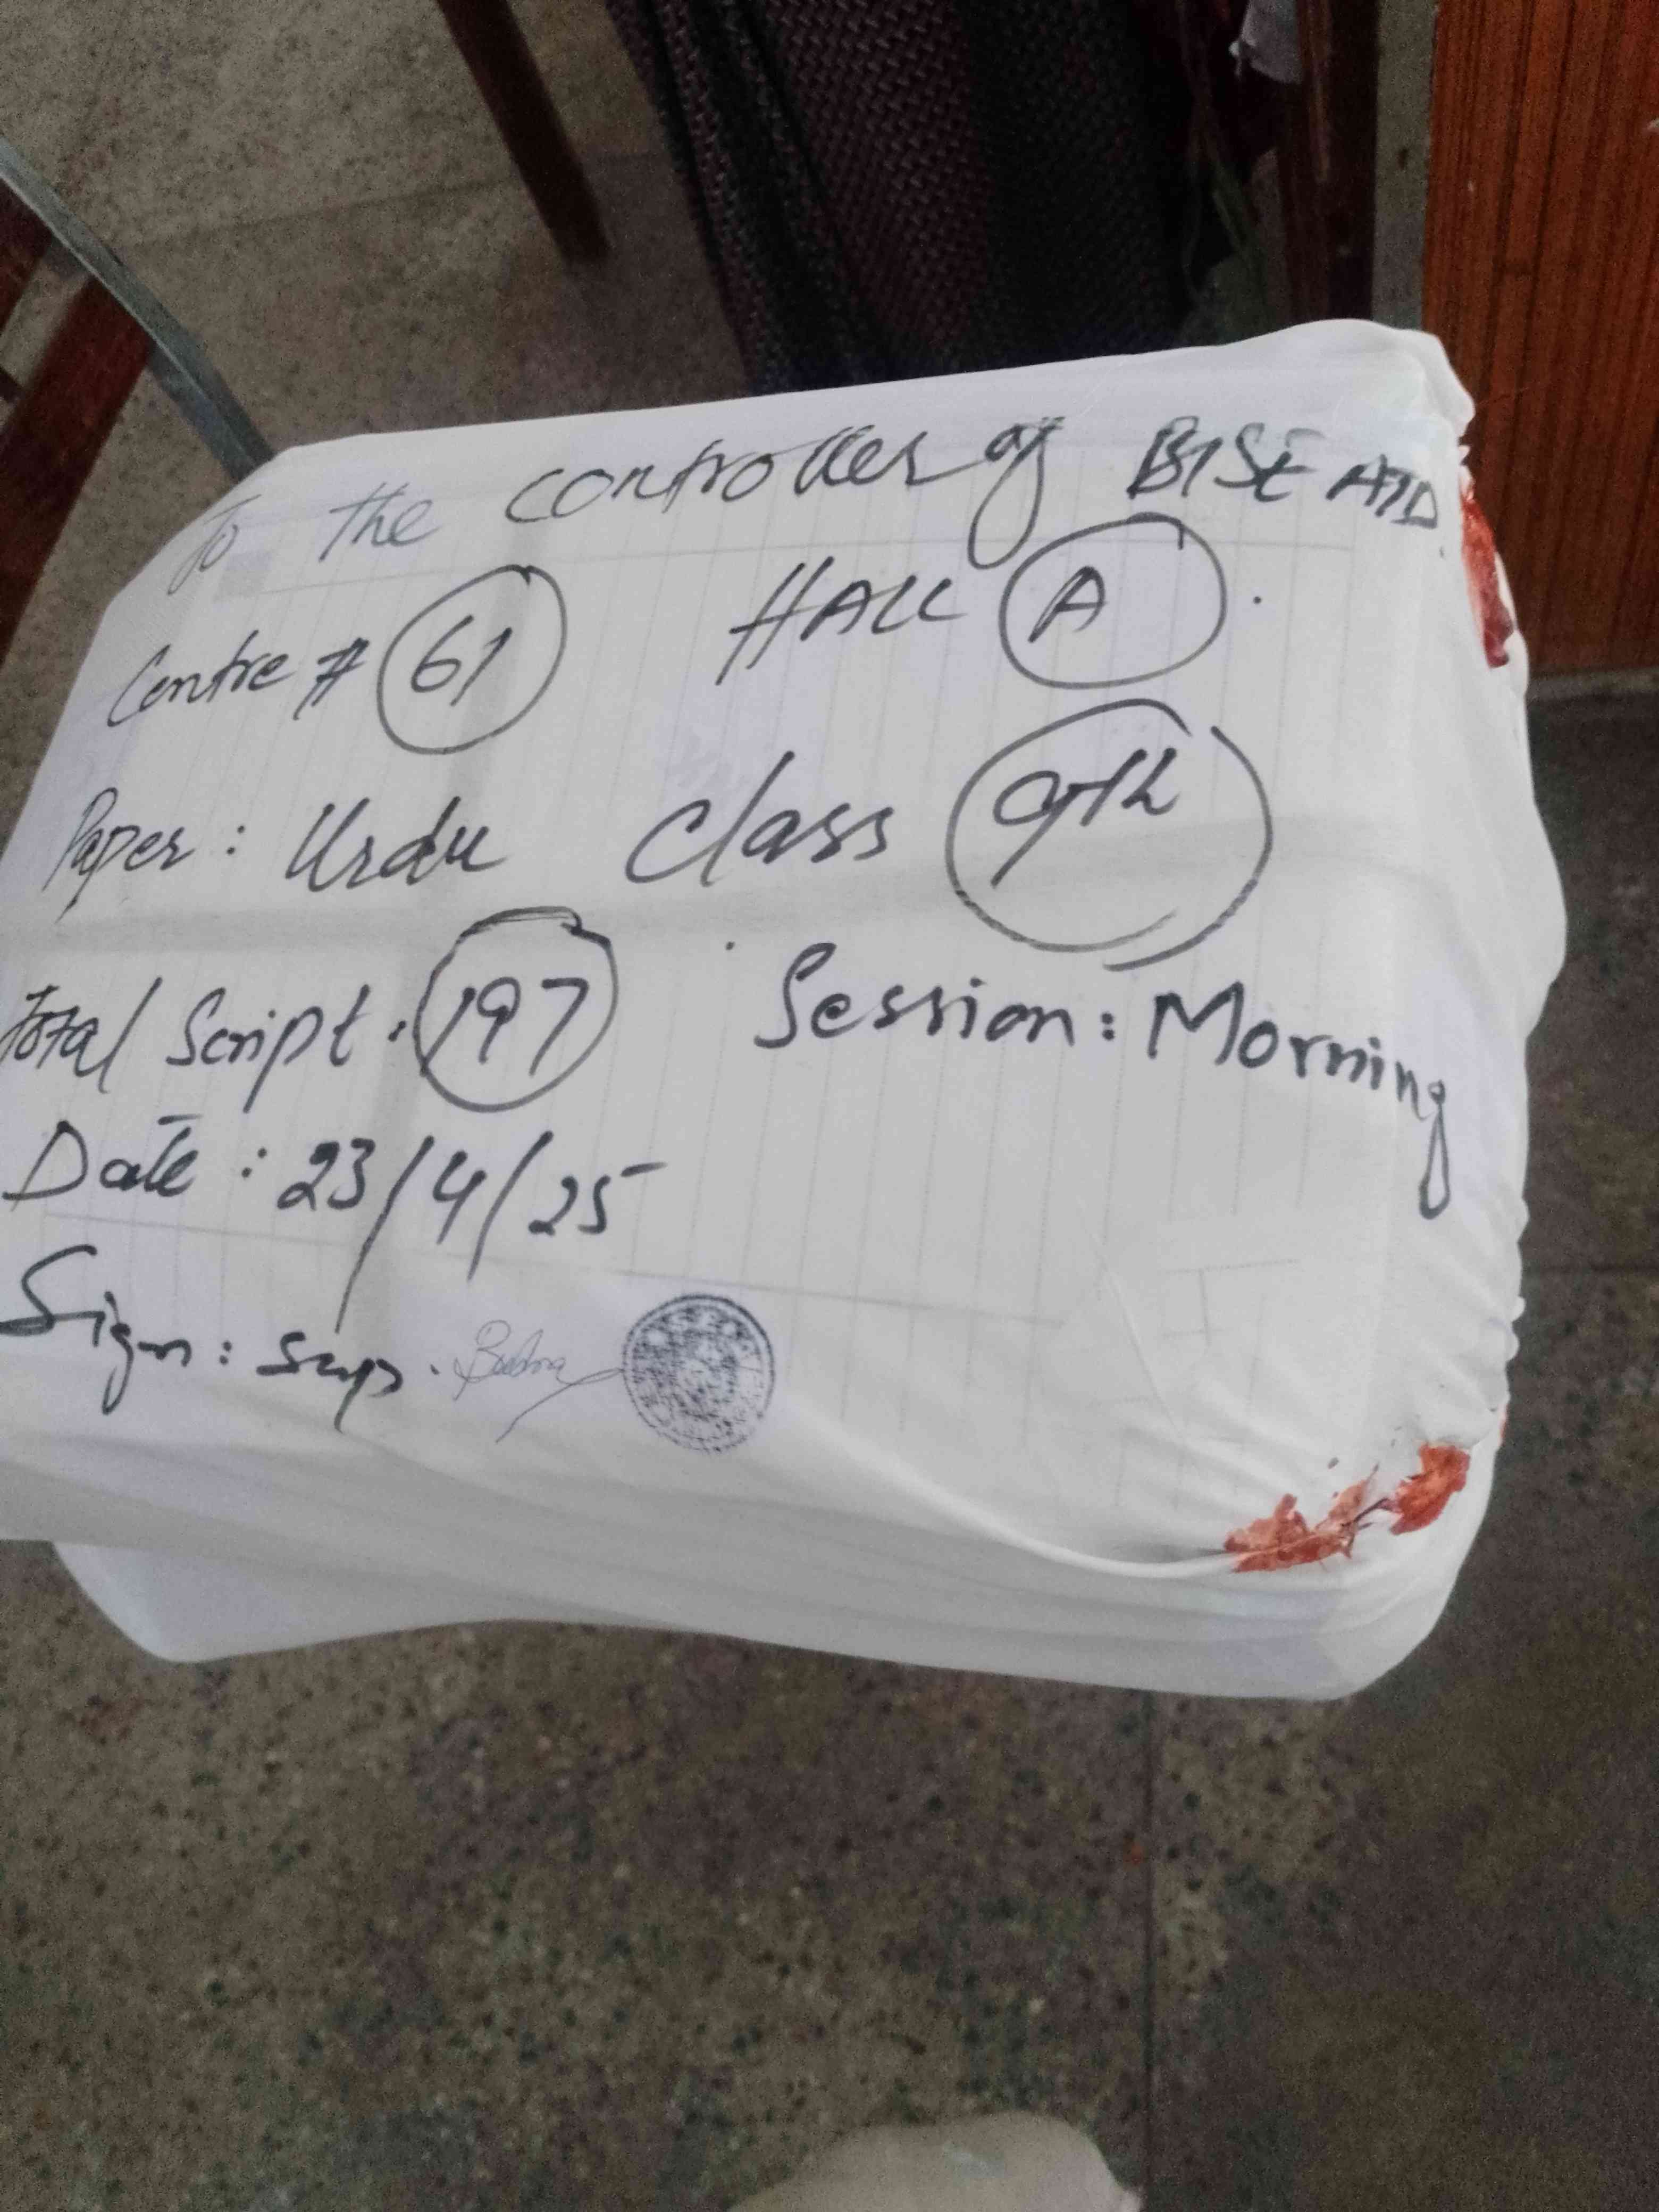 To the controller of BISE ATD
Centre # 61 HALL A
Paper: Urdu Class 9th
Total Script: 197 Session: Morning
Date: 23/4/25
Sign: Sup.